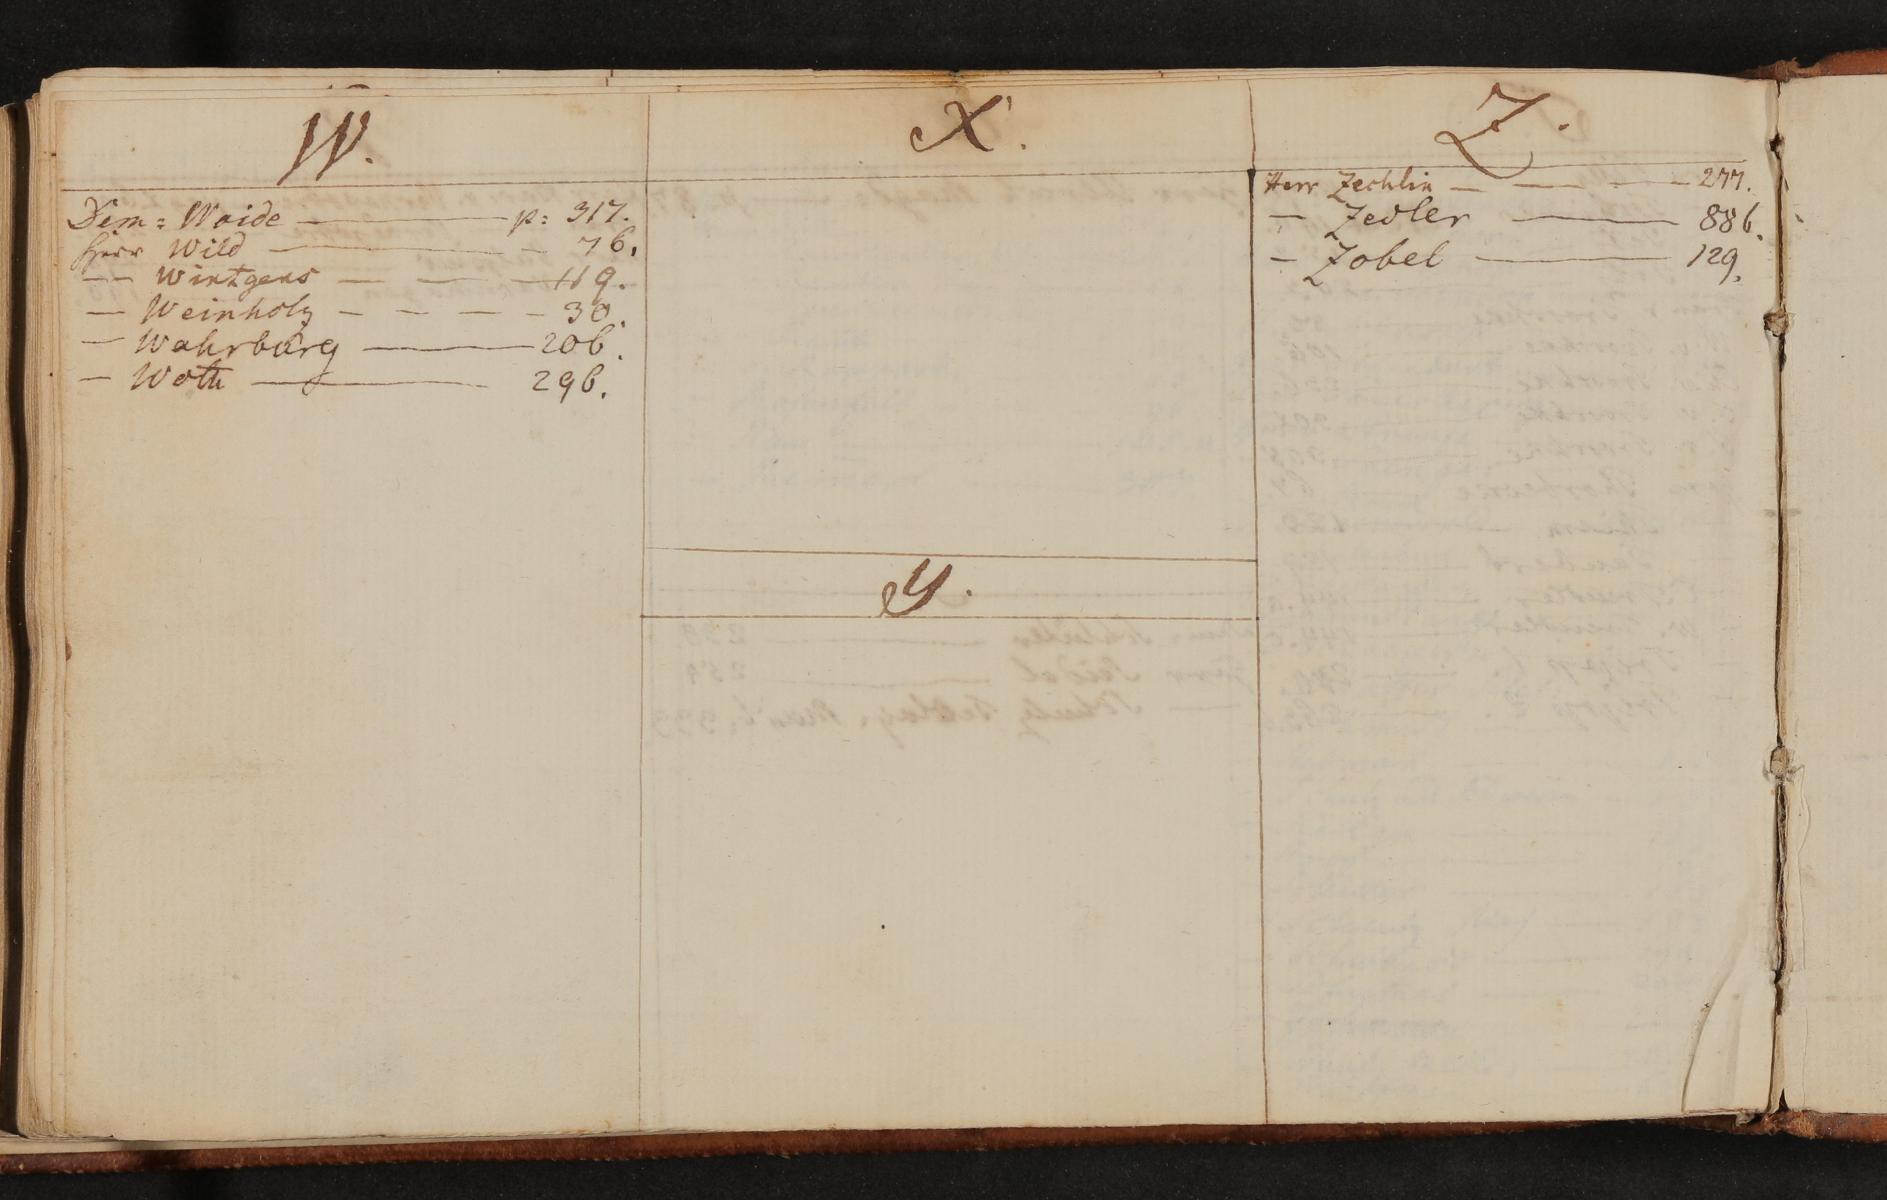 W.
Dem: Waide — p: 317.
Herr Wild — 76.
— Wintgens — 119.
— Weinholz — 30.
— Wahrburg — 206.
— Woth — 296.
X.
Y.
Z.
Herr Zechlin — 277.
— Zedler — 886.
— Zobel — 129.